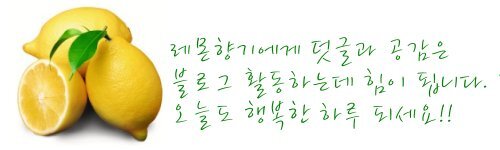 레몬향기에게 덧글과 공감은
블로그 활동하는데 힘이 됩니다.
오늘도 행복한 하루 되세요!!